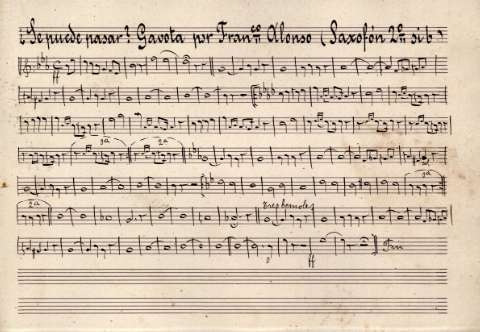 ¿Se puede pasar? Gavota por Fran.co Alonso (Saxofón 2º si b)
ff
1ª 2ª
1ª
2ª tres bemoles
Fin
ff